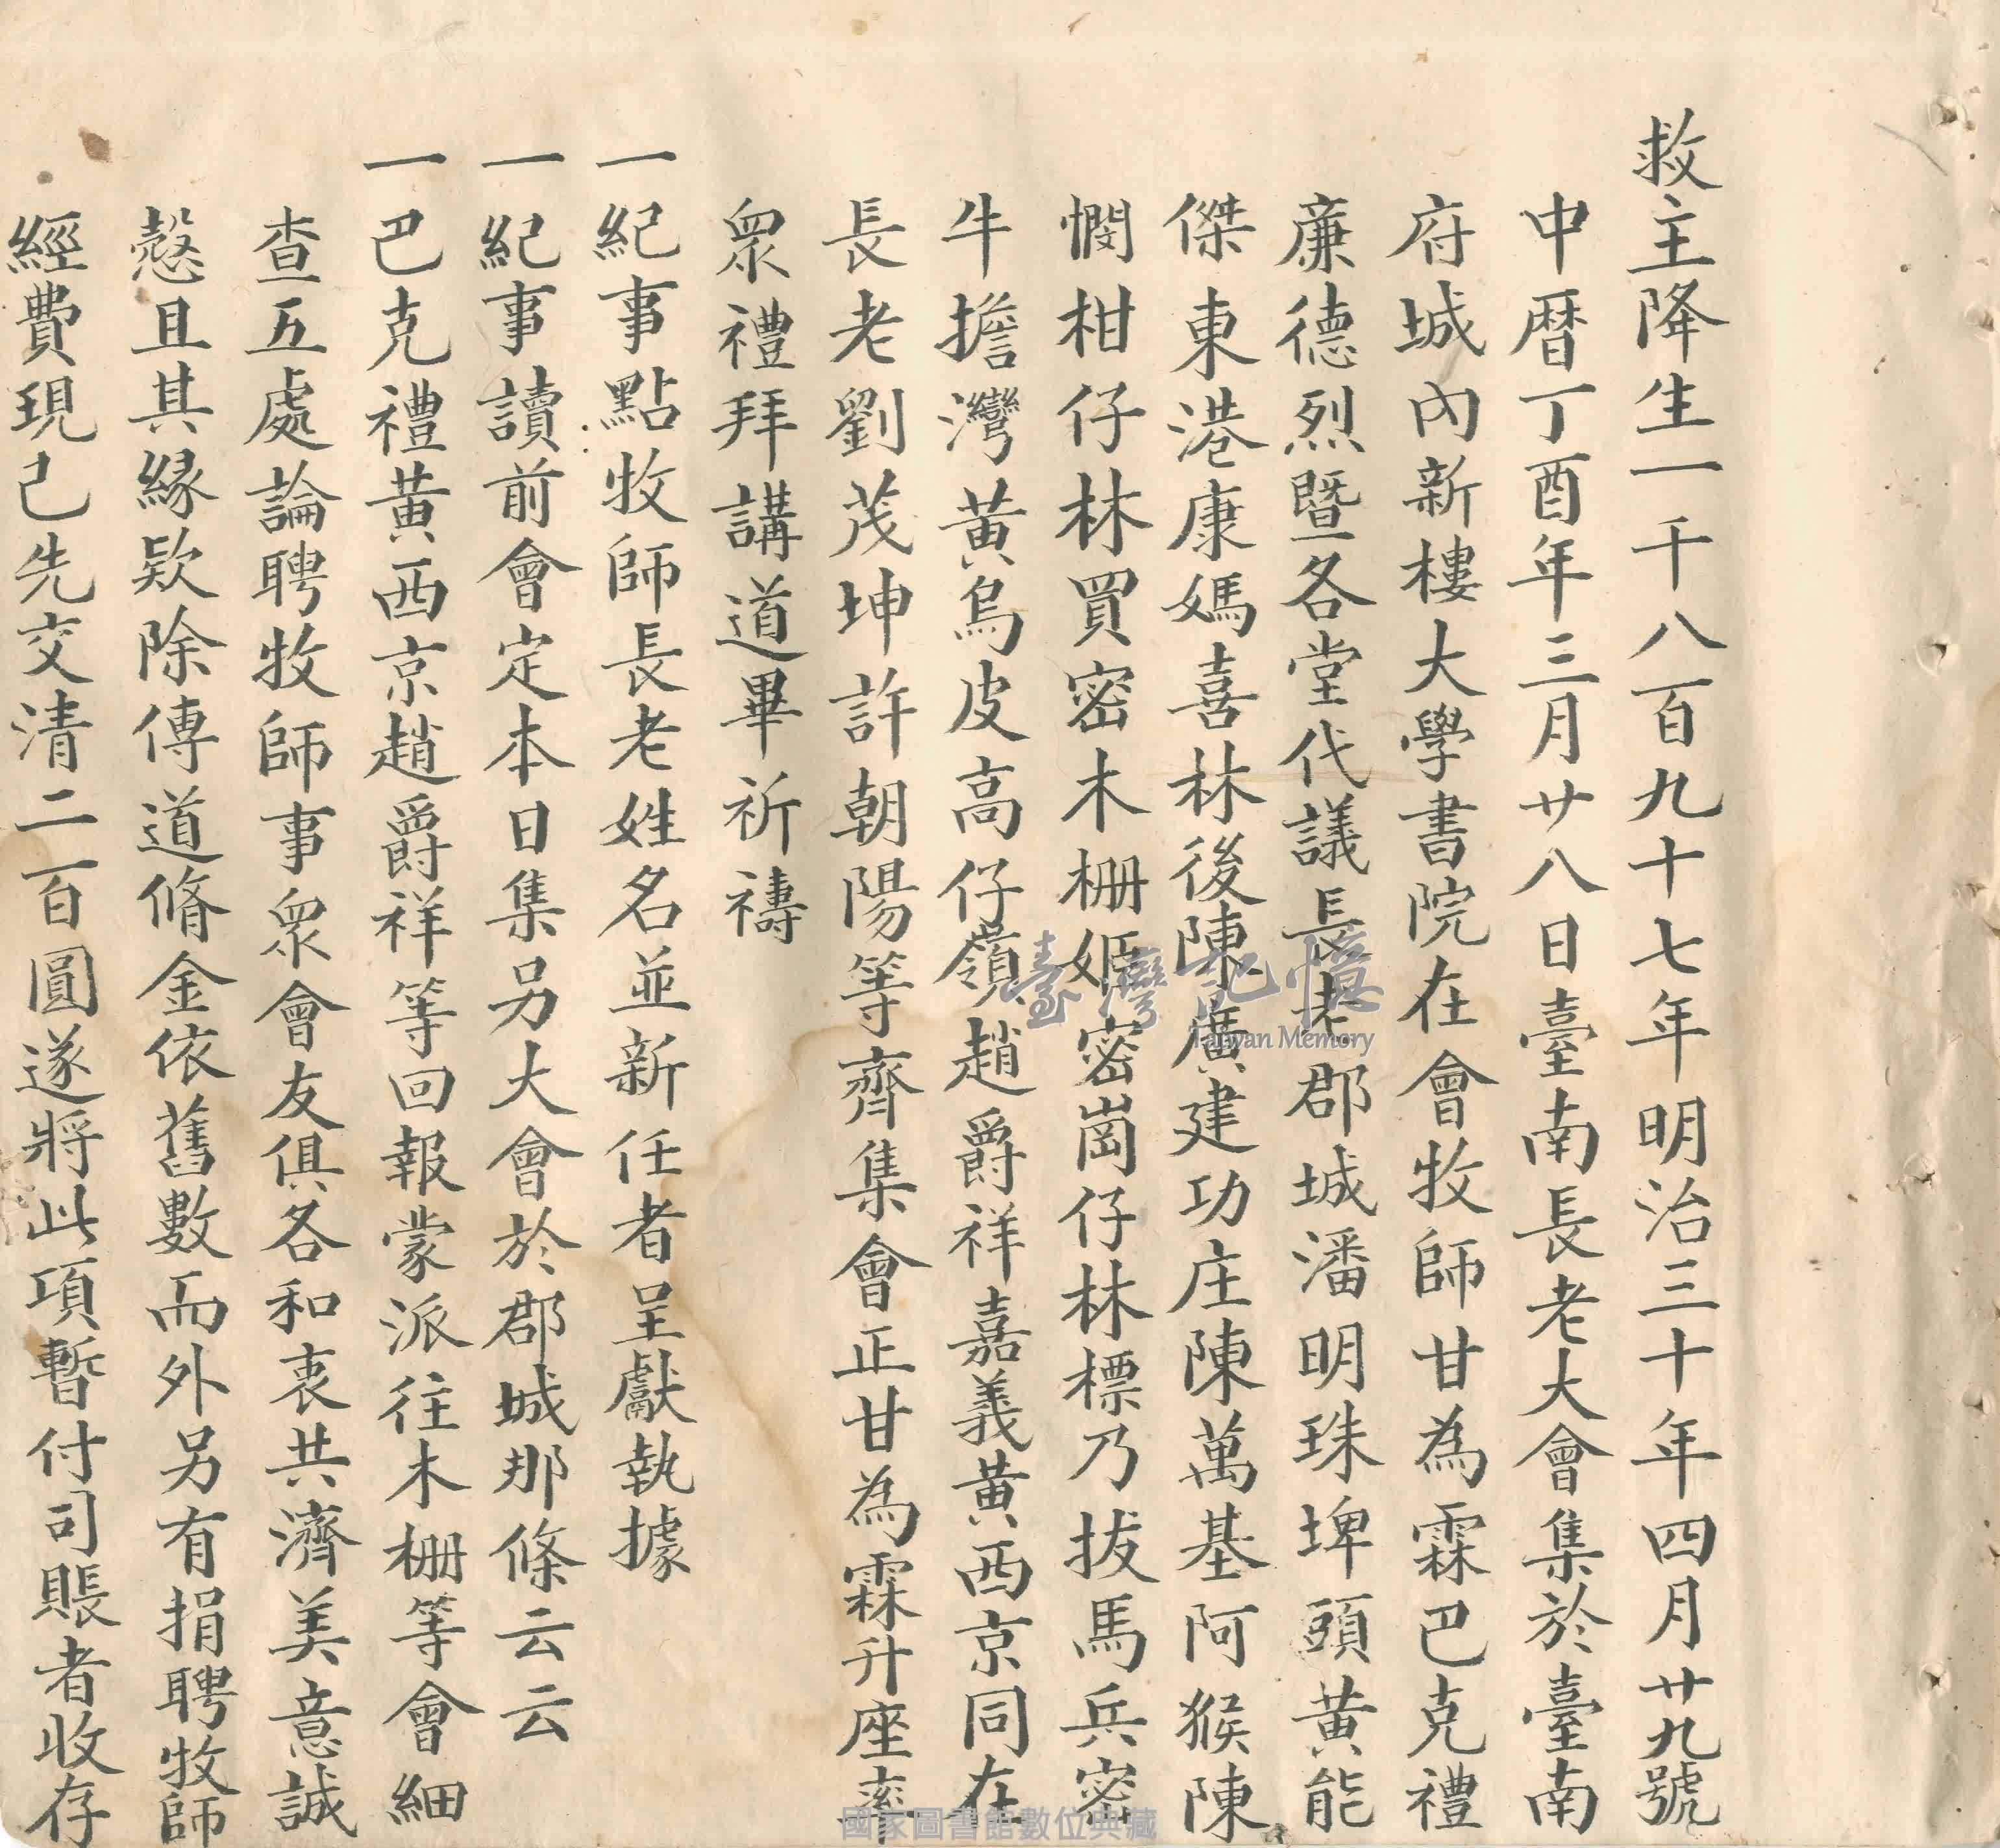 救主降生一千八百九十七年明治三十年四月廿九號
中曆丁酉年三月廿八日臺南長老大會集於臺南
府城內新樓大學書院在會牧師甘為霖巴克禮
廉德烈暨各堂代議長老郡城潘明珠埤頭黃能
傑東港康媽喜林後陳廣建功庄陳萬基阿猴陳
憫柑仔林買密木柵姬密崗仔林標乃拔馬兵密
牛擔灣黃烏皮高仔嶺趙爵祥嘉義黃西京同在
長老劉茂坤許朝陽等齊集會正甘為霖升座率
眾禮拜講道畢祈禱
一紀事點牧師長老姓名並新任者呈獻執據
一紀事讀前會定本日集另大會於郡城那條云云
一巴克禮黃西京趙爵祥等回報蒙派往木柵等會細
查五處論聘牧師事眾會友俱各和衷共濟美意誠
慤且其緣欵除傳道脩金依舊數而外另有捐聘牧師
經費現已先交清二百圓遂將此項暫付司賬者收存
臺灣記憶
Taiwan Memory
國家圖書館數位典藏